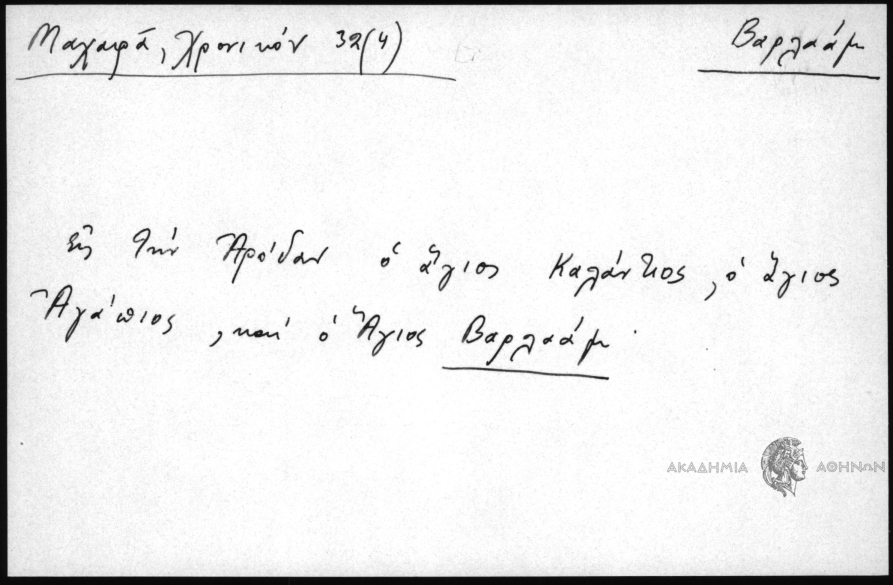 Μαχαιρᾶ, Χρονικόν 32(4)
Βαρλαάμ
Εἰς τὴν Ἀρόδαν ὁ ἅγιος Καλάντιος, ὁ ἅγιος
Ἀγάπιος, καὶ ὁ Ἅγιος Βαρλαάμ.
ΑΚΑΔΗΜΙΑ ΑΘΗΝΩΝ